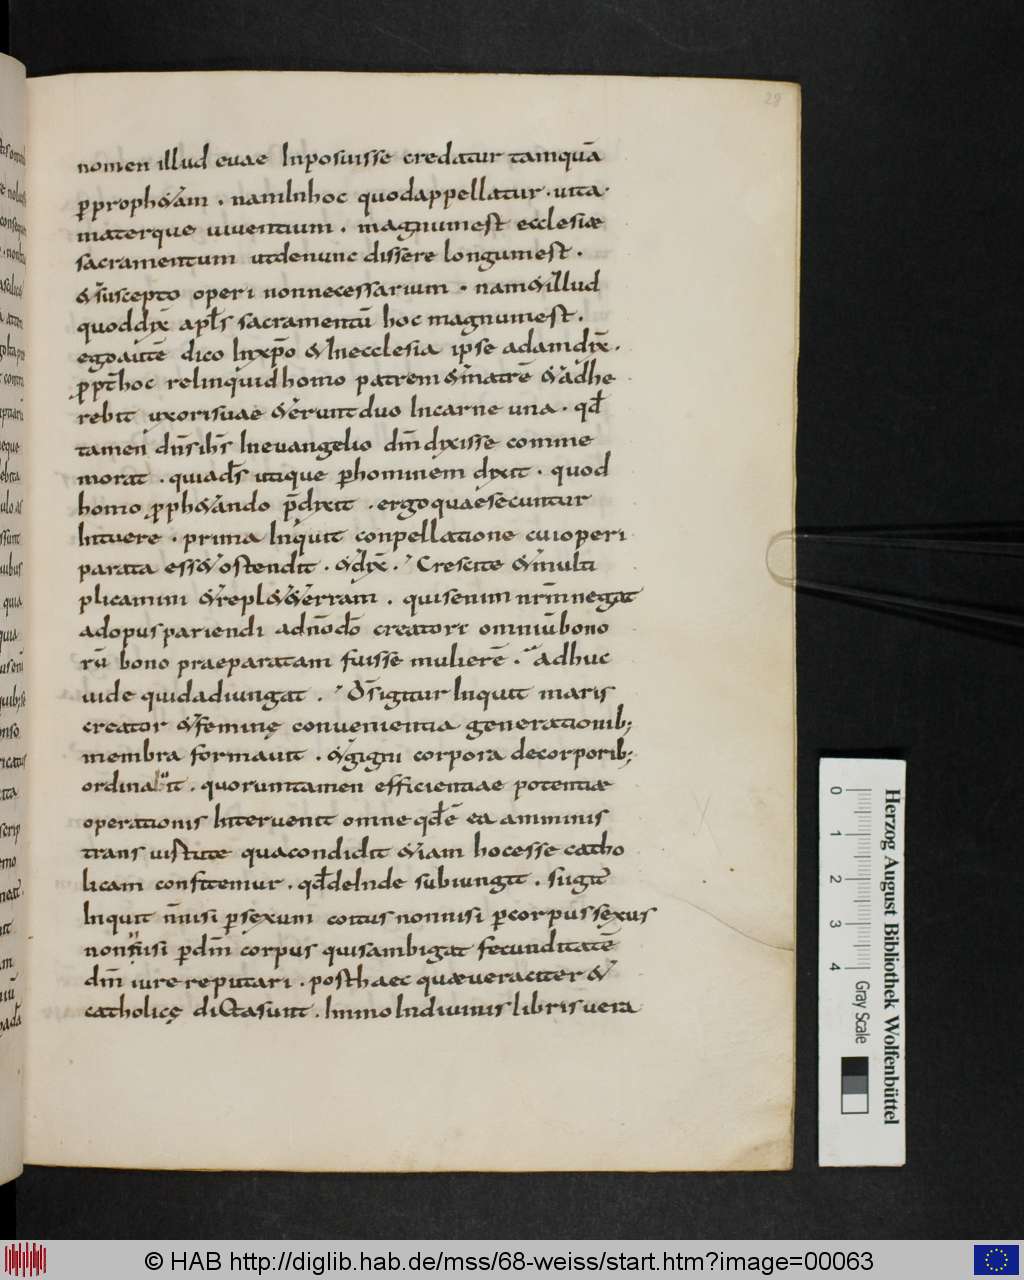 28
nomen illud euae Inposuisse credatur tamquā
ꝑproph&ā́m . namInhoc quodappellatur . uita .
materque uiuentium . magnumest ecclesiæ
sacramentum utdenunc dissere longumest .
&suscepto operi nonnecessarium . nam&illud
quoddix̄ apl̄s sacramentū hoc magnumest .
egoautē dico Inxp̄o &Inecclesia ipse adamdix̄ .
ꝓpt̄hoc relinquidhomo patrem&matrē &adhe
rebit uxorisuae &eruntduo Incarne una . qd̄
tamen dn̄sih̄s Ineuangelio dm̄dixisse comme
morat . quiad̄s utique ꝑhominem dixit . quod
homo ꝓph&ando p̄dixit . ergoquaesecuntur
Intuere . prima Inquit conpellatione cuioperi
parata ess&ostendit . &dix̄ . Crescite &multi
plicamini &repl&&erram . quisenim nr̄mnegat
adopuspariendi adn̄odō creatore omniūbono
rū bono praeparatam fuisse mulierē . adhuc
uide quidadiungat . Ds̄igitur Inquit maris
creator &feminę conuenientia generationib;
membra formauit . &gigni corpora decorporib;
ordinauit . quorumtamen efficientiae potentiæ
operationis Interuenit omne qd̄ē ea amminis
trans uistute quacondidit &iam hocesse catho
licam confitemur . qd̄deInde subiungit . sugit̄
Inquit n̄nisi ꝑsexum coitus nonnisi ꝑcorpussexus
nonnisi ꝑdm̄ corpus quisambigat fecunditatē
dm̄ iure reputari . posthaec quæueraciter &
catholicę dictasunt . Immo Indiuinis libris uera
0 1 2 3 4
Gray Scale
Herzog August Bibliothek Wolfenbüttel
© HAB http://diglib.hab.de/mss/68-weiss/start.htm?image=00063